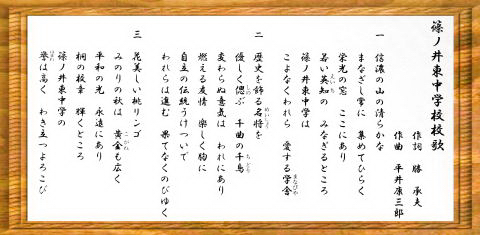 篠ノ井東中学校校歌
作詞 勝 承夫
作曲 平井康三郎
一 信濃の山の清らかな
まなざし常に 集めてひらく
栄光の窓 ここにあり
若い英知の みなぎるところ
えいち
篠ノ井東中学は
こよなくわれら 愛する学舎
まなびや
二 歴史を飾る名将を
めいしょう
優しく偲ぶ 千曲の千鳥
しの
ちどり
変わらぬ意気は われにあり
燃える友情 楽しく胸に
自立の伝統うけついで
われらは進む 果てなくのびゆく
三 花美しい桃リンゴ
みのりの秋は 黄金も広く
こがね
平和の光 永遠にあり
桐の校章 輝くところ
篠ノ井東中学の
誉は高く わき立つよろこび
ほまれ